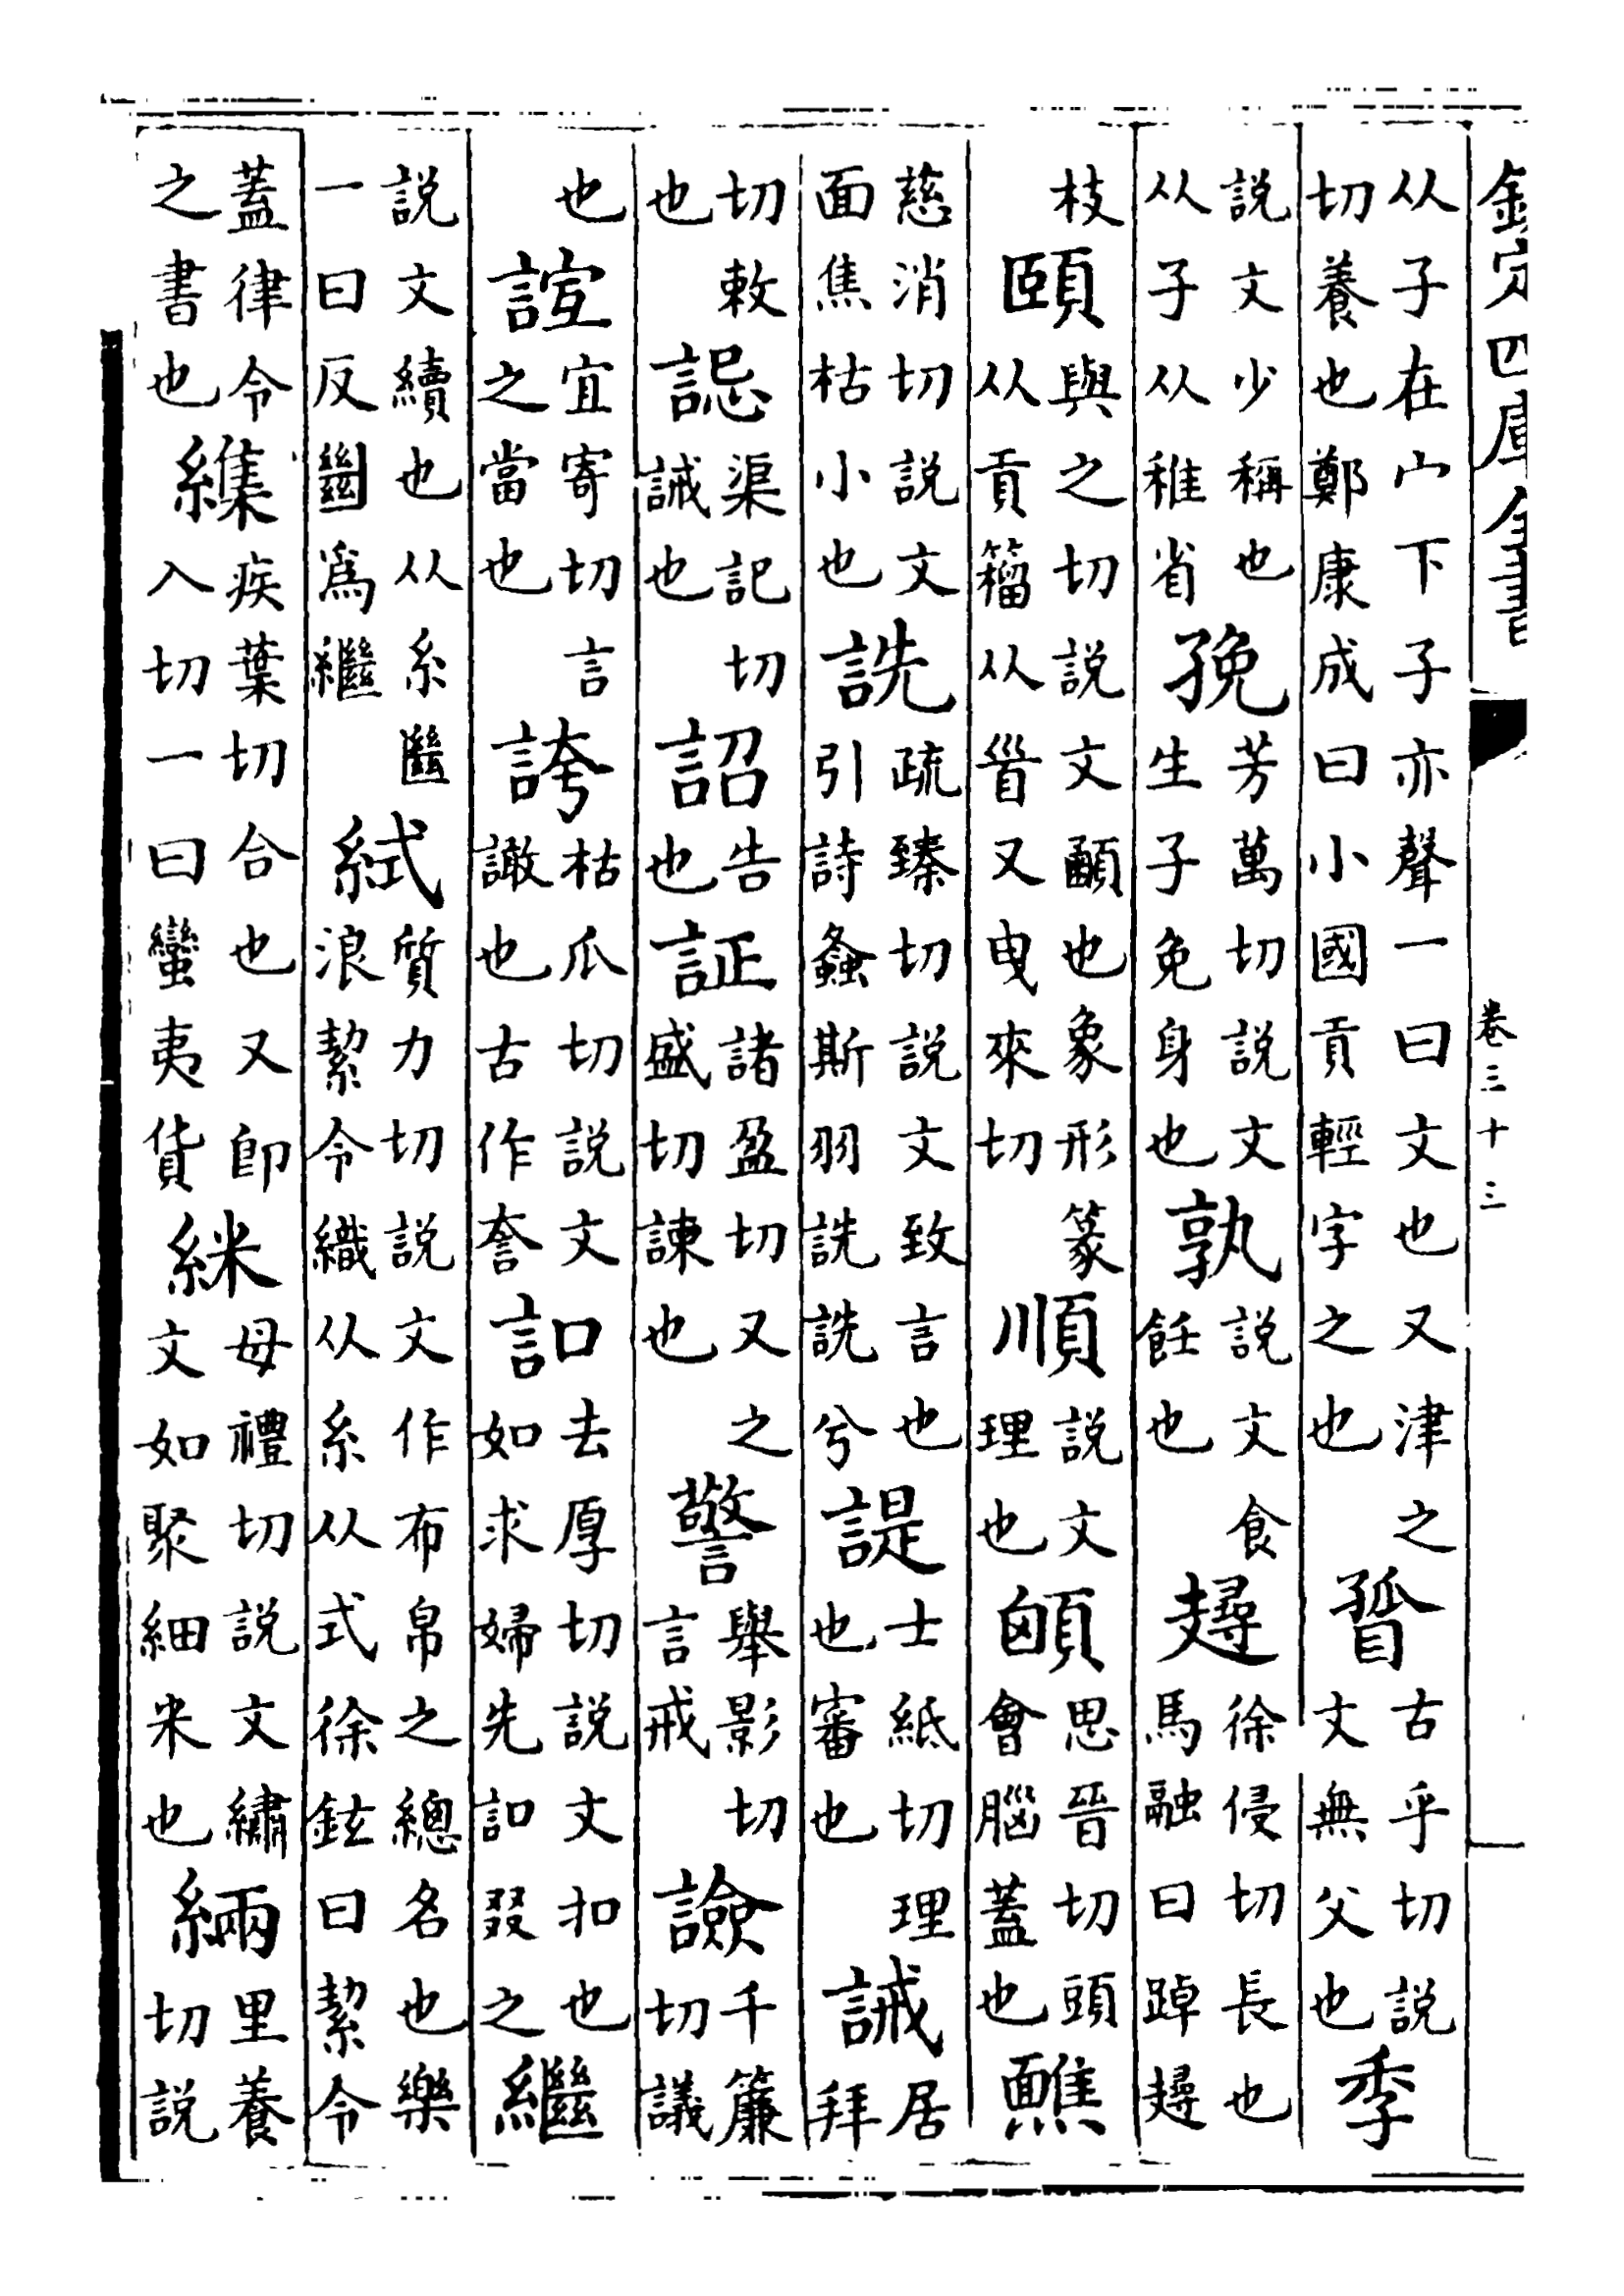 欽定四庫全書 卷三十三
从子在宀下子亦聲一曰文也又津之切養也鄭康成曰小國貢輕字之也 古乎切説文無父也季
説文少稱也从子从稚省㝃芳萬切説文生子免身也孰説文食飪也 徐侵切長也馬融曰踔
枝頤與之切説文顄也象形篆从貢籀从 又曳來切順説文理也 思晉切頭會腦蓋也䩌
慈消切説文面焦枯小也詵疏臻切説文致言也引詩螽斯羽詵詵兮諟士紙切理也審也誡居拜
切敕也誋渠記切誡也詔告也証諸盈切又之盛切諫也警舉影切言戒譣千簾切議
也誼宜寄切言之當也誇枯瓜切説文譀也古作 去厚切説文扣也如求婦先 叕之繼
説文續也从糸㡭一曰反𢇍爲繼 質力切説文作布帛之總名也樂浪絜令織从糸从式徐鉉曰絜令
蓋律令之書也䌖疾葉切合也又即入切一曰蠻夷貨䋛母禮切説文繡文如聚細米也緉里養切説